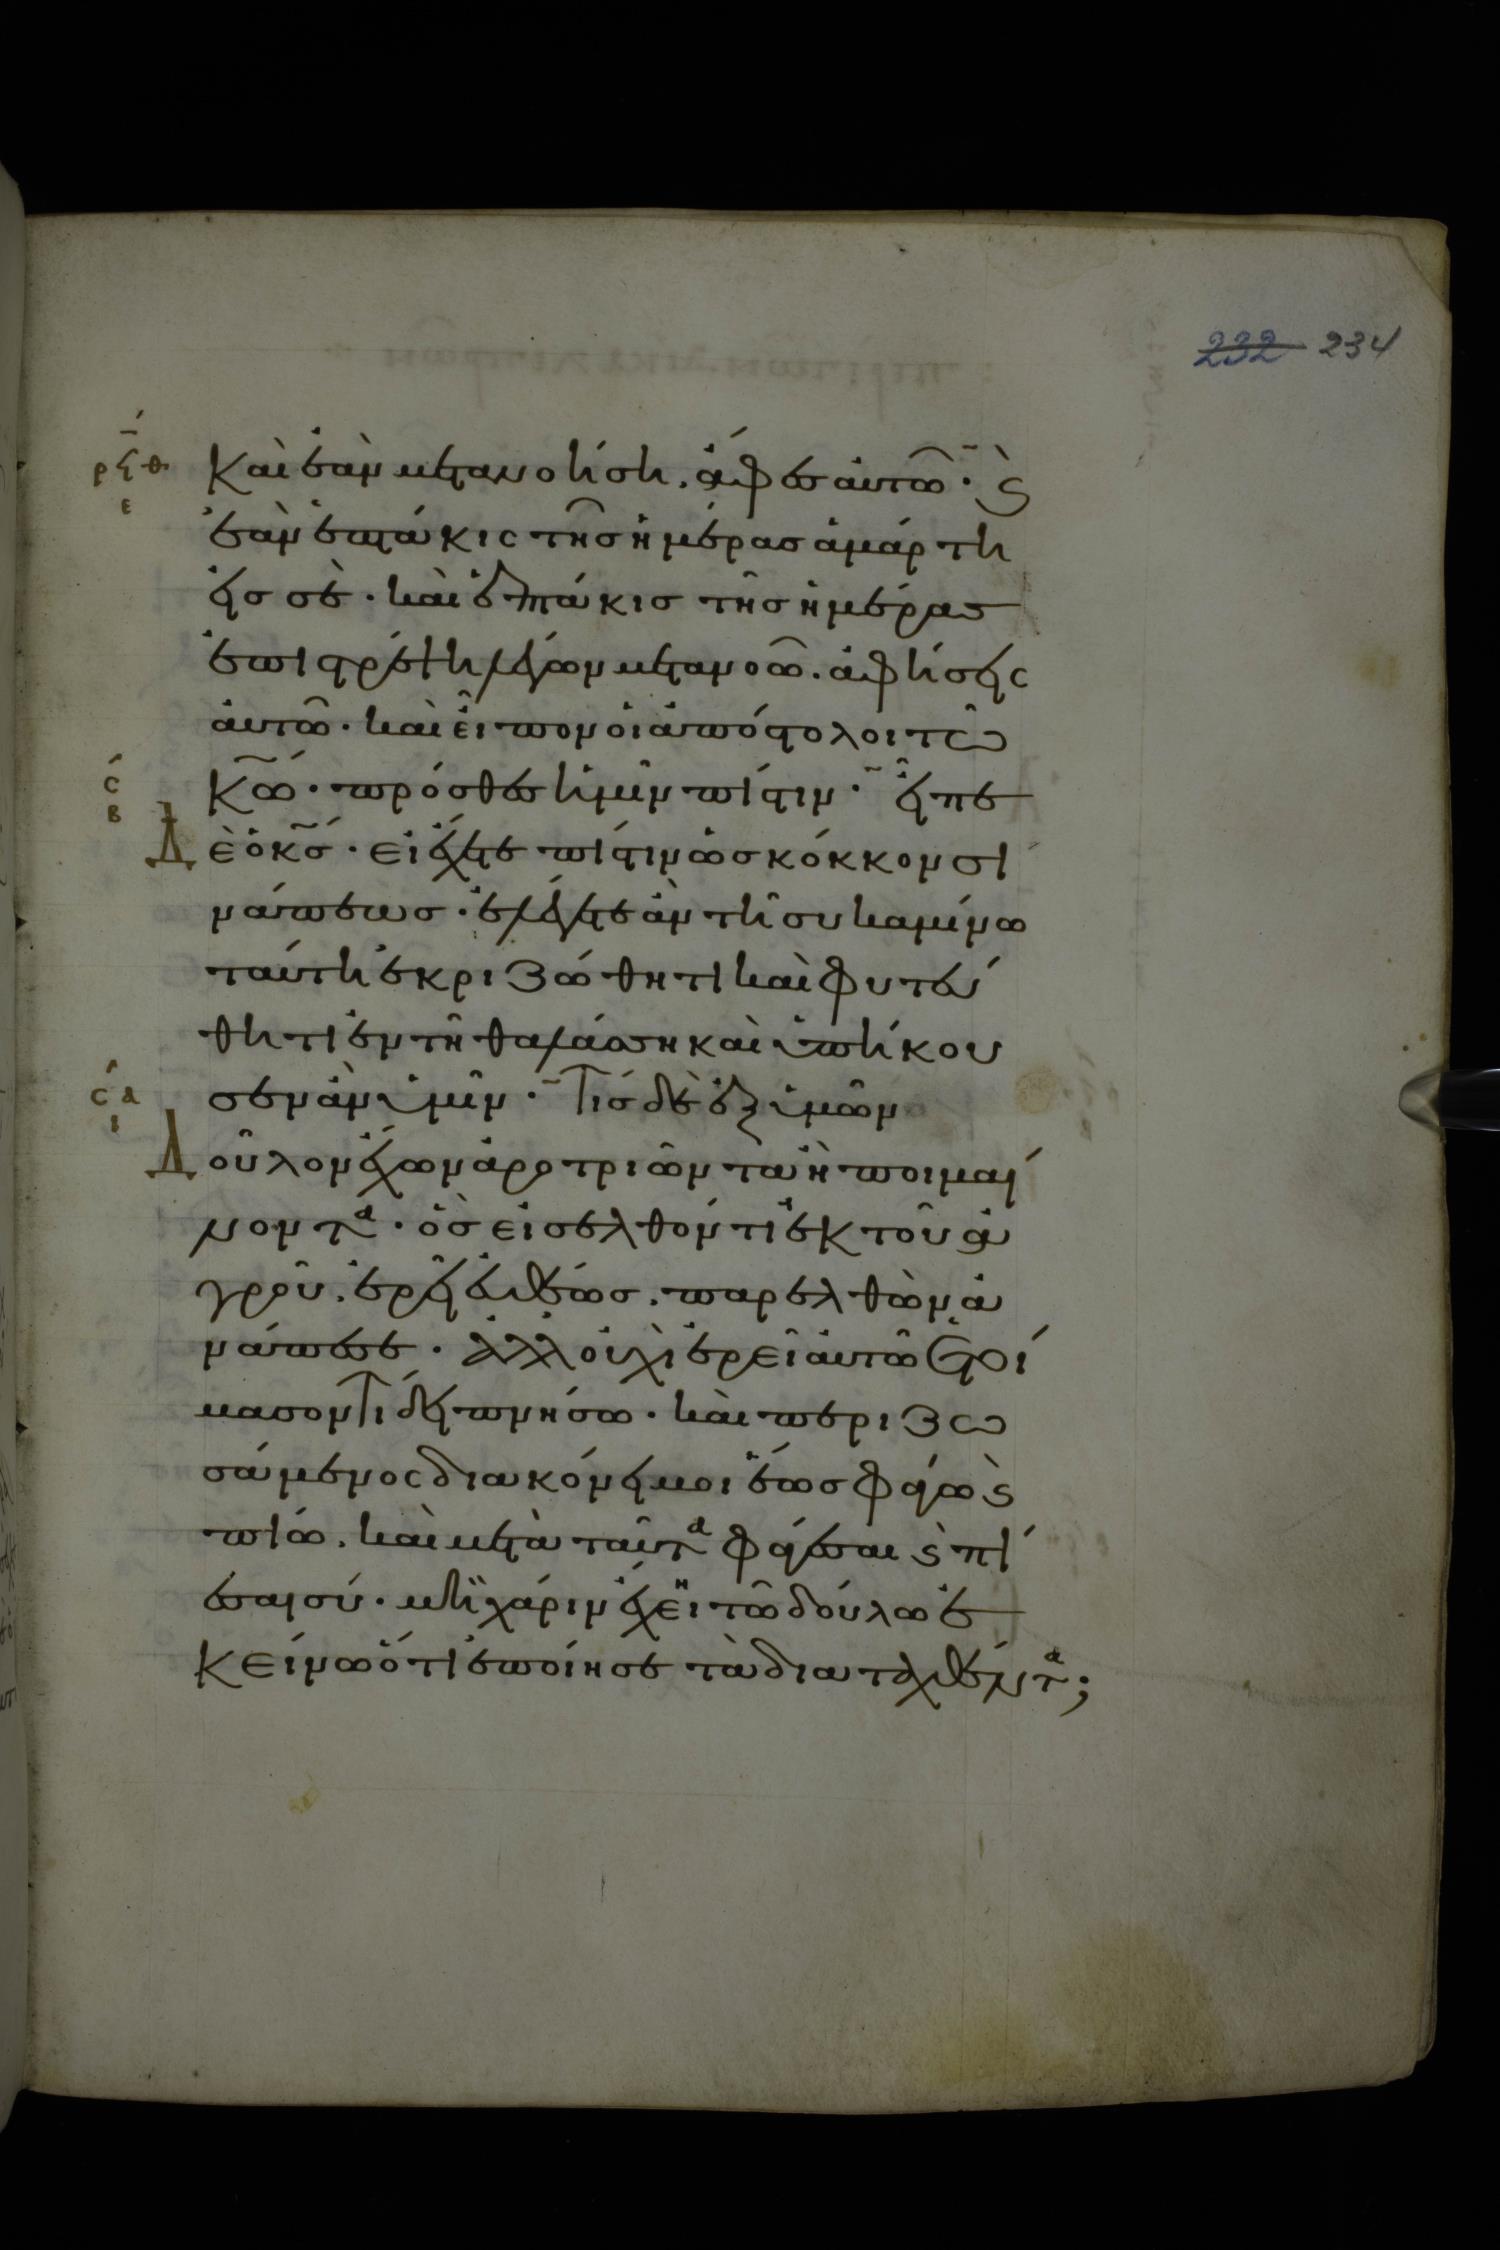 232 234
ρϟθ
ε
Καὶ ἐὰν μετανοήση. ἄφες αὐτῶ· ϛ̀
ἐὰν ἑπτάκις τῆς ἡμέρας ἁμάρτη
εἰς σὲ· καὶ ἑπτάκις τῆς ἡμέρας
ἐπιστρέψη λέγων μετανοῶ. ἀφήσεις
αὐτῶ· καὶ εἶπον οἱ ἀπόστολοι τῶ
ς
β
Κῶ· πρόσθες ἡμῖν πίστιν· εἶπε
Δὲ ὁ κς· εἰ ἔχετε πίστιν ὡς κόκκον σι
νάπεως· ἐλέγετε ἂν τῆ συκαμίνω
ταύτη ἐκριζώθητι καὶ φυτεύ
θητι ἐν τῆ θαλάσση καὶ ὑπήκου
ςα
ι
σεν ἂν ὑμῖν· Τίς δὲ ἐξ ὑμῶν
Δοῦλον ἔχων ἀροτριῶντα ἢ ποιμαί
νοντα· ὃς εἰσελθόντι ἐκ τοῦ ἀ
γροῦ. ἐρεῖ εὐθέως. παρελθὼν ἀ
νάπεσε· ἀλλ' οὐχὶ ἐρεῖ αὐτῶ ἑτοί
μασον τί δειπνήσω· καὶ περιζω
σάμενος διακόνει μοι ἕως φάγω ϛ̀
πίω. καὶ μετὰ ταῦτα φάγεσαι ϛ̀ πί
εσαι σύ· μὴ χάριν ἔχει τῶ δούλω ἐ
κείνω ὅτι ἐποίησε τὰ διαταχθέντα;